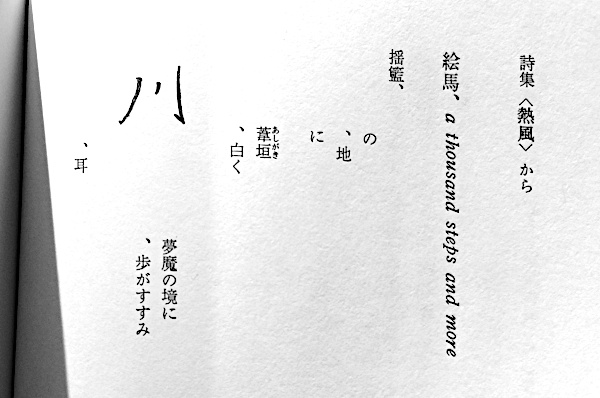 詩集〈熱風〉から
絵馬、a thousand steps and more
揺籃、
の
、地
に
葦垣
あしがき
、白く
川
夢魔の境に
、歩がすすみ
、耳